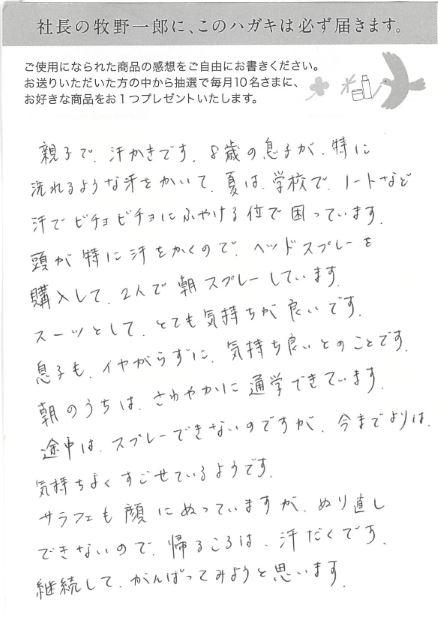 社長の牧野一郎に、このハガキは必ず届きます。
ご使用になられた商品の感想をご自由にお書きください。
お送りいただいた方の中から抽選で毎月10名さまに、
お好きな商品をお1つプレゼントいたします。
親子で、汗かきです。8歳の息子が、特に
洗れるような汗をかいて、夏は、学校で、ノートなど
汗でビチョビチョにふやける位で困っています。
頭が特に汗をかくので、ヘッドスプレーを
購入して、2人で朝スプレーしています。
スーッとして、とても気持ちが良いです。
息子も、イヤがらずに、気持ち良いとのことです。
朝のうちは、さわやかに通学できています。
途中は、スプレーできないのですが、今までよりは、
気持ちよくすごせているようです。
サラフェも顔にぬっていますが、ぬり直し
できないので、帰るころは、汗だくです。
継続して、がんばってみようと思います。